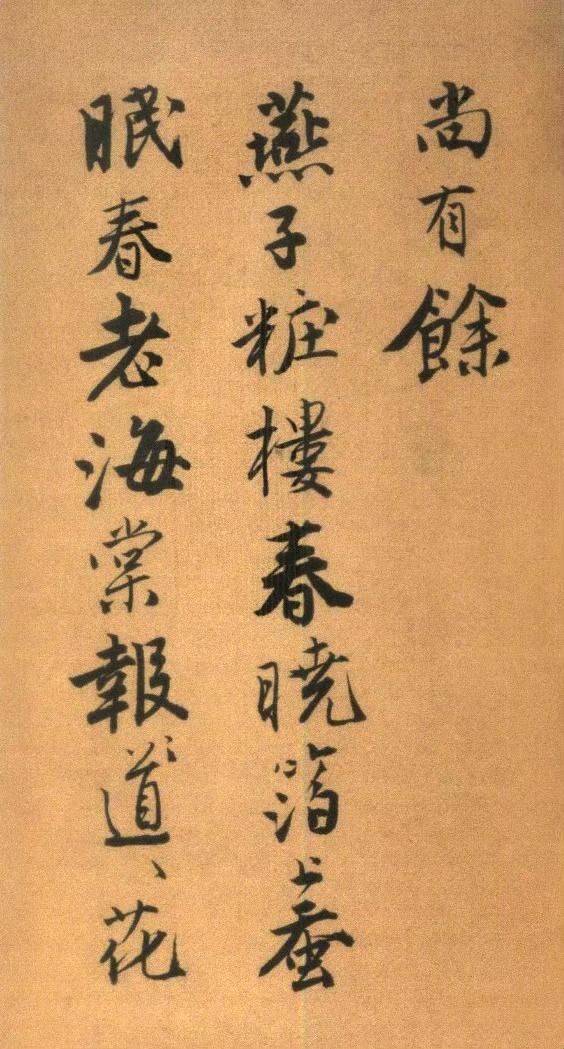 尚有餘
燕子粧樓春暁箔上蚕
眠春老海棠報道、花